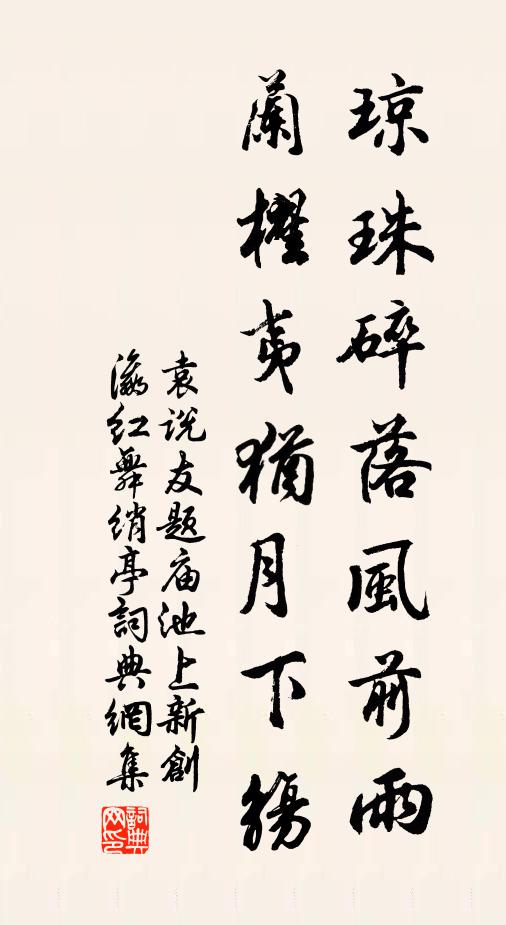 琼珠碎落風前雨
蘭櫂夷猶月下觴
袁说友题庙池上新創
瀛红舞绡亭詞典網集
詞典网印